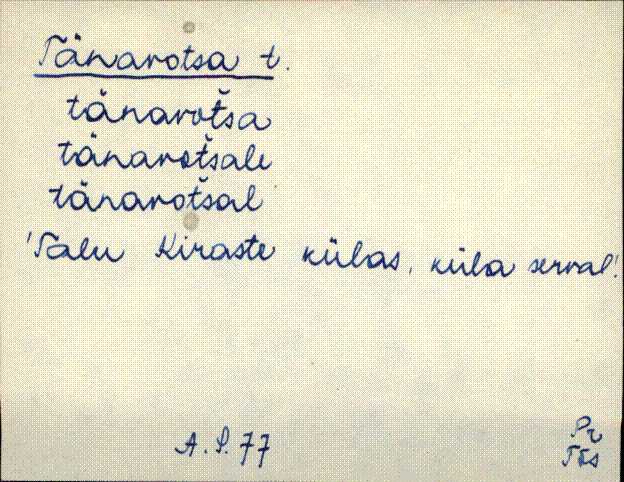 Tänavotsa t.
tänavot̆sa
tänavot̆sale
tänavot̆sal
'Talu Kiraste külas, küla serval'.
A. P. 77
Pr
Tõs